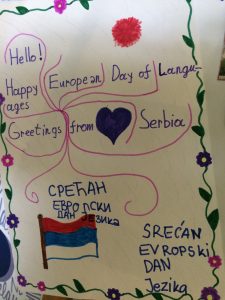 Hello!
Happy European Day of Langu-
ages
Greetings from Serbia
СРЕЋАН
ЕВРОПСКИ
ДАН ЈЕЗИКА
SREĆAN
EVROPSKI
DAN
Jezika